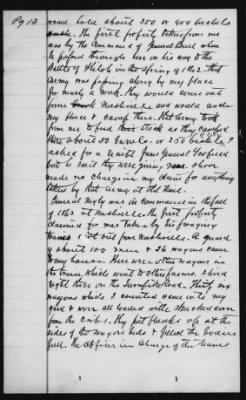 Pg 13
would hold about 350 or 400 bushels
The first property taken from me
was by the Command of General Buell when
he passed through here on his way to the
battle of Shiloh in the Spring of 1862. That
army was passing along by my place
for nearly a week. They would come out
from Nashville and would
my fence & camp there. That Army took
from me to feed their stock as they camped
here about 50 barrels or 250 bushels
asked for a from General
but he said they were going
made no charge in my claim for anything
taken by that Army at that time.
General was in command in the fall
of 1863 at Nashville. The first property
was taken by his foraging
out from Nashville. A guard
of about 100 men & 36 wagons came
to my house. There were other wagons in
the train which went to other farms. I lived
right there on the Road. Thirty six
wagons which I counted came into my
& were all loaded with
from the cribs. They put planks up at the
sides of the wagon beds & filled the bodies
full. The Officer in charge of the